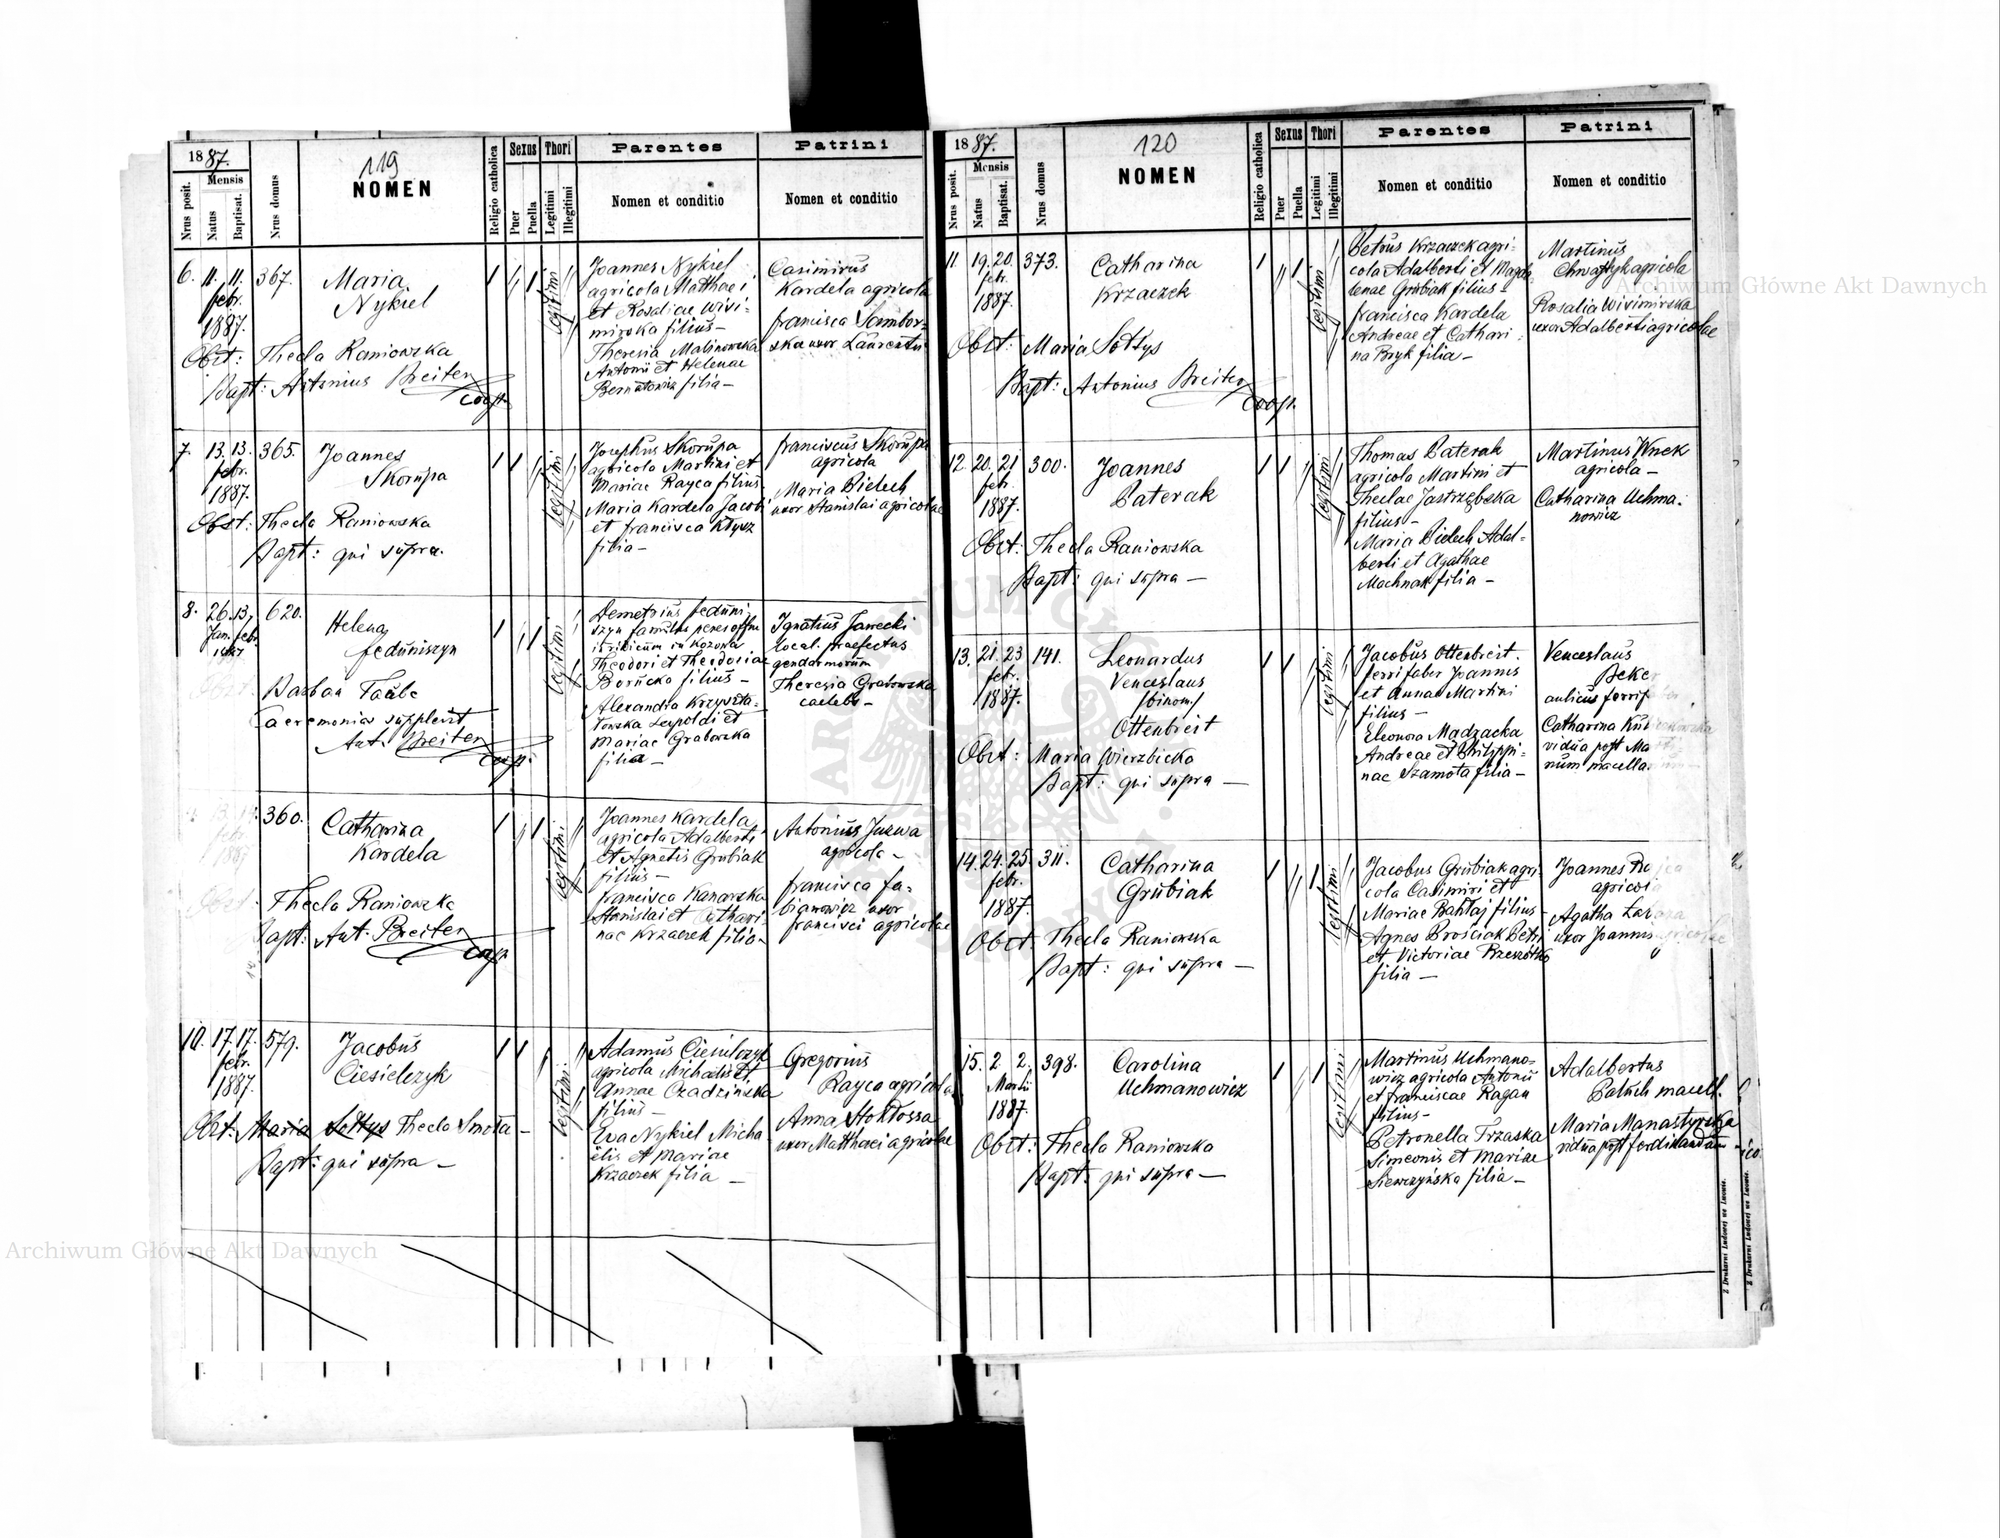 1887.
119
NOMEN
Nrus posit.
Mensis
Natus
Baptisat.
Nrus domus
Religio catholica
Sexus
Puer
Puella
Thori
Legitimi
Illegitimi
Parentes
Nomen et conditio
Patrini
Nomen et conditio
6. 11. 11. 367.
febr.
1887.
Maria
Nykiel
Obst: Thecla Raniowska
Bapt: Antonius Breiter
coop.
legitimi
Joannes Nykiel
agricola Matthaei
et Rosaliae Wivi-
mirska filius –
Theresia Malinowska
Antonii et Helenae
Bernatowicz filia –
Casimirus
Kardela agricola
francisca Sambor-
ska uxor Laurentii
7. 13. 13. 365.
febr.
1887.
Joannes
Skorupa
Obst: Thecla Raniowska
Bapt: qui supra.
legitimi
Josephus Skorupa
agricola Martini et
Mariae Rayca filius
Maria Kardela Jacobi
et francisca Kłysz
filia –
franciscus Skorupa
agricola
Maria Bielech
uxor Stanislai agricolae
8. 26. 13. 620.
Jan. febr.
1887
Helena
feduniszyn
Obst.
Barbara Taube
Caeremonia supplevit
Ant. Breiter
coop.
legitimi
Demetrius feduni-
szyn famulus penes offm
in Kozowa
Theodori et Theodosiae
Borucka filius –
Alexandra Krzyszta-
łowska Leopoldi et
Mariae Grabowska
filia –
Ignatius Janecki
local. praefectus
gendarmorum
Theresia Grabowska
caelebs –
360.
febr.
1887
Catharina
Kardela
Obst.
Thecla Raniowska
Bapt: Ant. Breiter
coop.
legitimi
Joannes Kardela
agricola Adalberti
et Agnetis Grubiak
filius –
francisca Kanarska
Stanislai et Cathari-
nae Krzaczek filia –
Antonius Jurwa
agricola –
francisca fa-
bianowicz uxor
francisci agricolae
10. 17. 17. 579.
febr.
1887.
Jacobus
Ciesielczyk
Obst: Maria Sołtys Thecla Smoła –
Bapt: qui supra –
legitimi
Adamus Ciesielczyk
agricola Michaelis et
Annae Czadzińska
filius –
Eva Nykiel Micha-
elis et Mariae
Krzaczek filia –
Gregorius
Rayca agricola
Anna Stokłossa
uxor Matthaei agricolae
1887.
120
NOMEN
Nrus posit.
Mensis
Natus
Baptisat.
Nrus domus
Religio catholica
Sexus
Puer
Puella
Thori
Legitimi
Illegitimi
Parentes
Nomen et conditio
Patrini
Nomen et conditio
11. 19. 20. 373.
febr.
1887.
Catharina
Krzaczek
Obst: Maria Sołtys
Bapt: Antonius Breiter
coop.
legitimi
Petrus Krzaczek agri-
cola Adalberti et Magda-
lenae Grubiak filius –
francisca Kardela
Andreae et Cathari-
na Bryk filia –
Martinus
Chwastyk agricola
Rosalia Wivimirska
uxor Adalberti agricolae
12. 20. 21 300.
febr.
1887.
Joannes
Paterak
Obst: Thecla Raniowska
Bapt: qui supra –
legitimi
Thomas Paterak
agricola Martini et
Theclae Jastrzębska
filius –
Maria Bielech Adal-
berti et Agathae
Machnak filia –
Martinus Wnek
agricola –
Catharina Uchma-
nowicz
13. 21. 23 141.
febr.
1887.
Leonardus
Venceslaus
/binom/
Ottenbreit
Obst: Maria Wierzbicka
Bapt: qui supra –
legitimi
Jacobus Ottenbreit.
ferrifaber Joannis
et Anna Martini
filius –
Eleonora Madzacka
Andreae et Philippi-
nae Szamota filia –
Venceslaus
Beker
aulicus
Catharina
vidua post
num
14. 24. 25. 311.
febr.
1887.
Catharina
Grubiak
Obst: Thecla Raniowska
Bapt: qui supra –
legitimi
Jacobus Grubiak agri-
cola Casimiri et
Mariae Bahtaj filius –
Agnes Brościak Petri
et Victoriae Rzeszótko
filia –
Joannes
agricola
Agatha
uxor Joannis agricolae
15. 2. 2. 398.
Martii
1887.
Carolina
Uchmanowicz
Obst: Thecla Raniowska
Bapt: qui supra –
legitimi
Martinus Uchmano-
wicz agricola Antonii
et franciscae Ragan
filius –
Petronella Trzaska
Simeonis et Mariae
Siewczyńska filia –
Adalbertus
Paluch macell.
Maria Manastyrska
vidua post ferdinandum
Z Drukarni Ludowej we Lwowie.
Z Drukarni Ludowej we Lwowie.
Archiwum Główne Akt Dawnych
Archiwum Główne Akt Dawnych